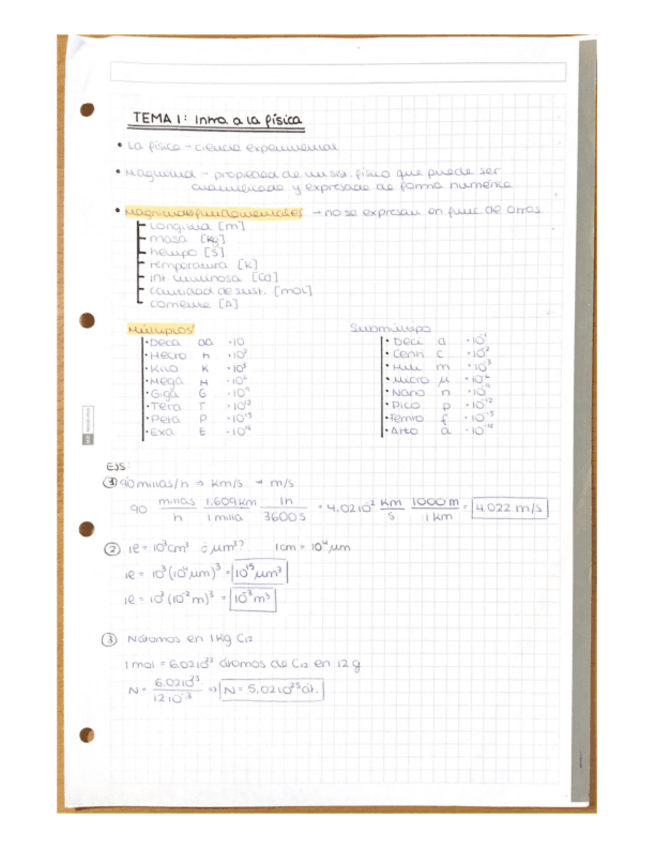 TEMA 1: Intro. a la física
• La física - ciencia experimental
• Magnitud - propiedad de un sist. físico que puede ser
cuantificada y expresada de forma numérica
• Magnitudes fundamentales → no se expresan en func. de otras.
longitud [m]
masa [kg]
tiempo [s]
temperatura [K]
int. luminosa [Cd]
cantidad de sust. [mol]
corriente [A]
Múltiplos
• Deca da ·10
• Hecto h ·10²
• Kilo K ·10³
• Mega M ·10⁶
• Giga G ·10⁹
• Tera T ·10¹²
• Peta P ·10¹⁵
• Exa E
Submúltiplo
• Deci d ·10⁻¹
• Centi c ·10⁻²
• Mili m ·10⁻³
• Micro μ ·10⁻⁶
• Nano n ·10⁻⁹
• Pico p ·10⁻¹²
• Femto f ·10⁻¹⁵
• Atto a
EJS:
① 90 millas/h ⇒ km/s → m/s
90 millas/h 1.609 km/1 milla 1h/3600 s = 4.02 10⁻² km/s 1000 m/1 km = 4.022 m/s
② 1l = 10³cm³ ¿μm³? 1cm = 10⁴μm
1l = 10³(10⁴μm)³ = 10¹⁵μm³
1l = 10³(10⁻²m)³ = 10⁻³m³
③ N átomos en 1kg C12
1 mol = 6.02 10²³ átomos de C12 en 12 g
N = 6.02 10²³/12 10⁻³ ⇒ N = 5.02 10²⁵ át.
1